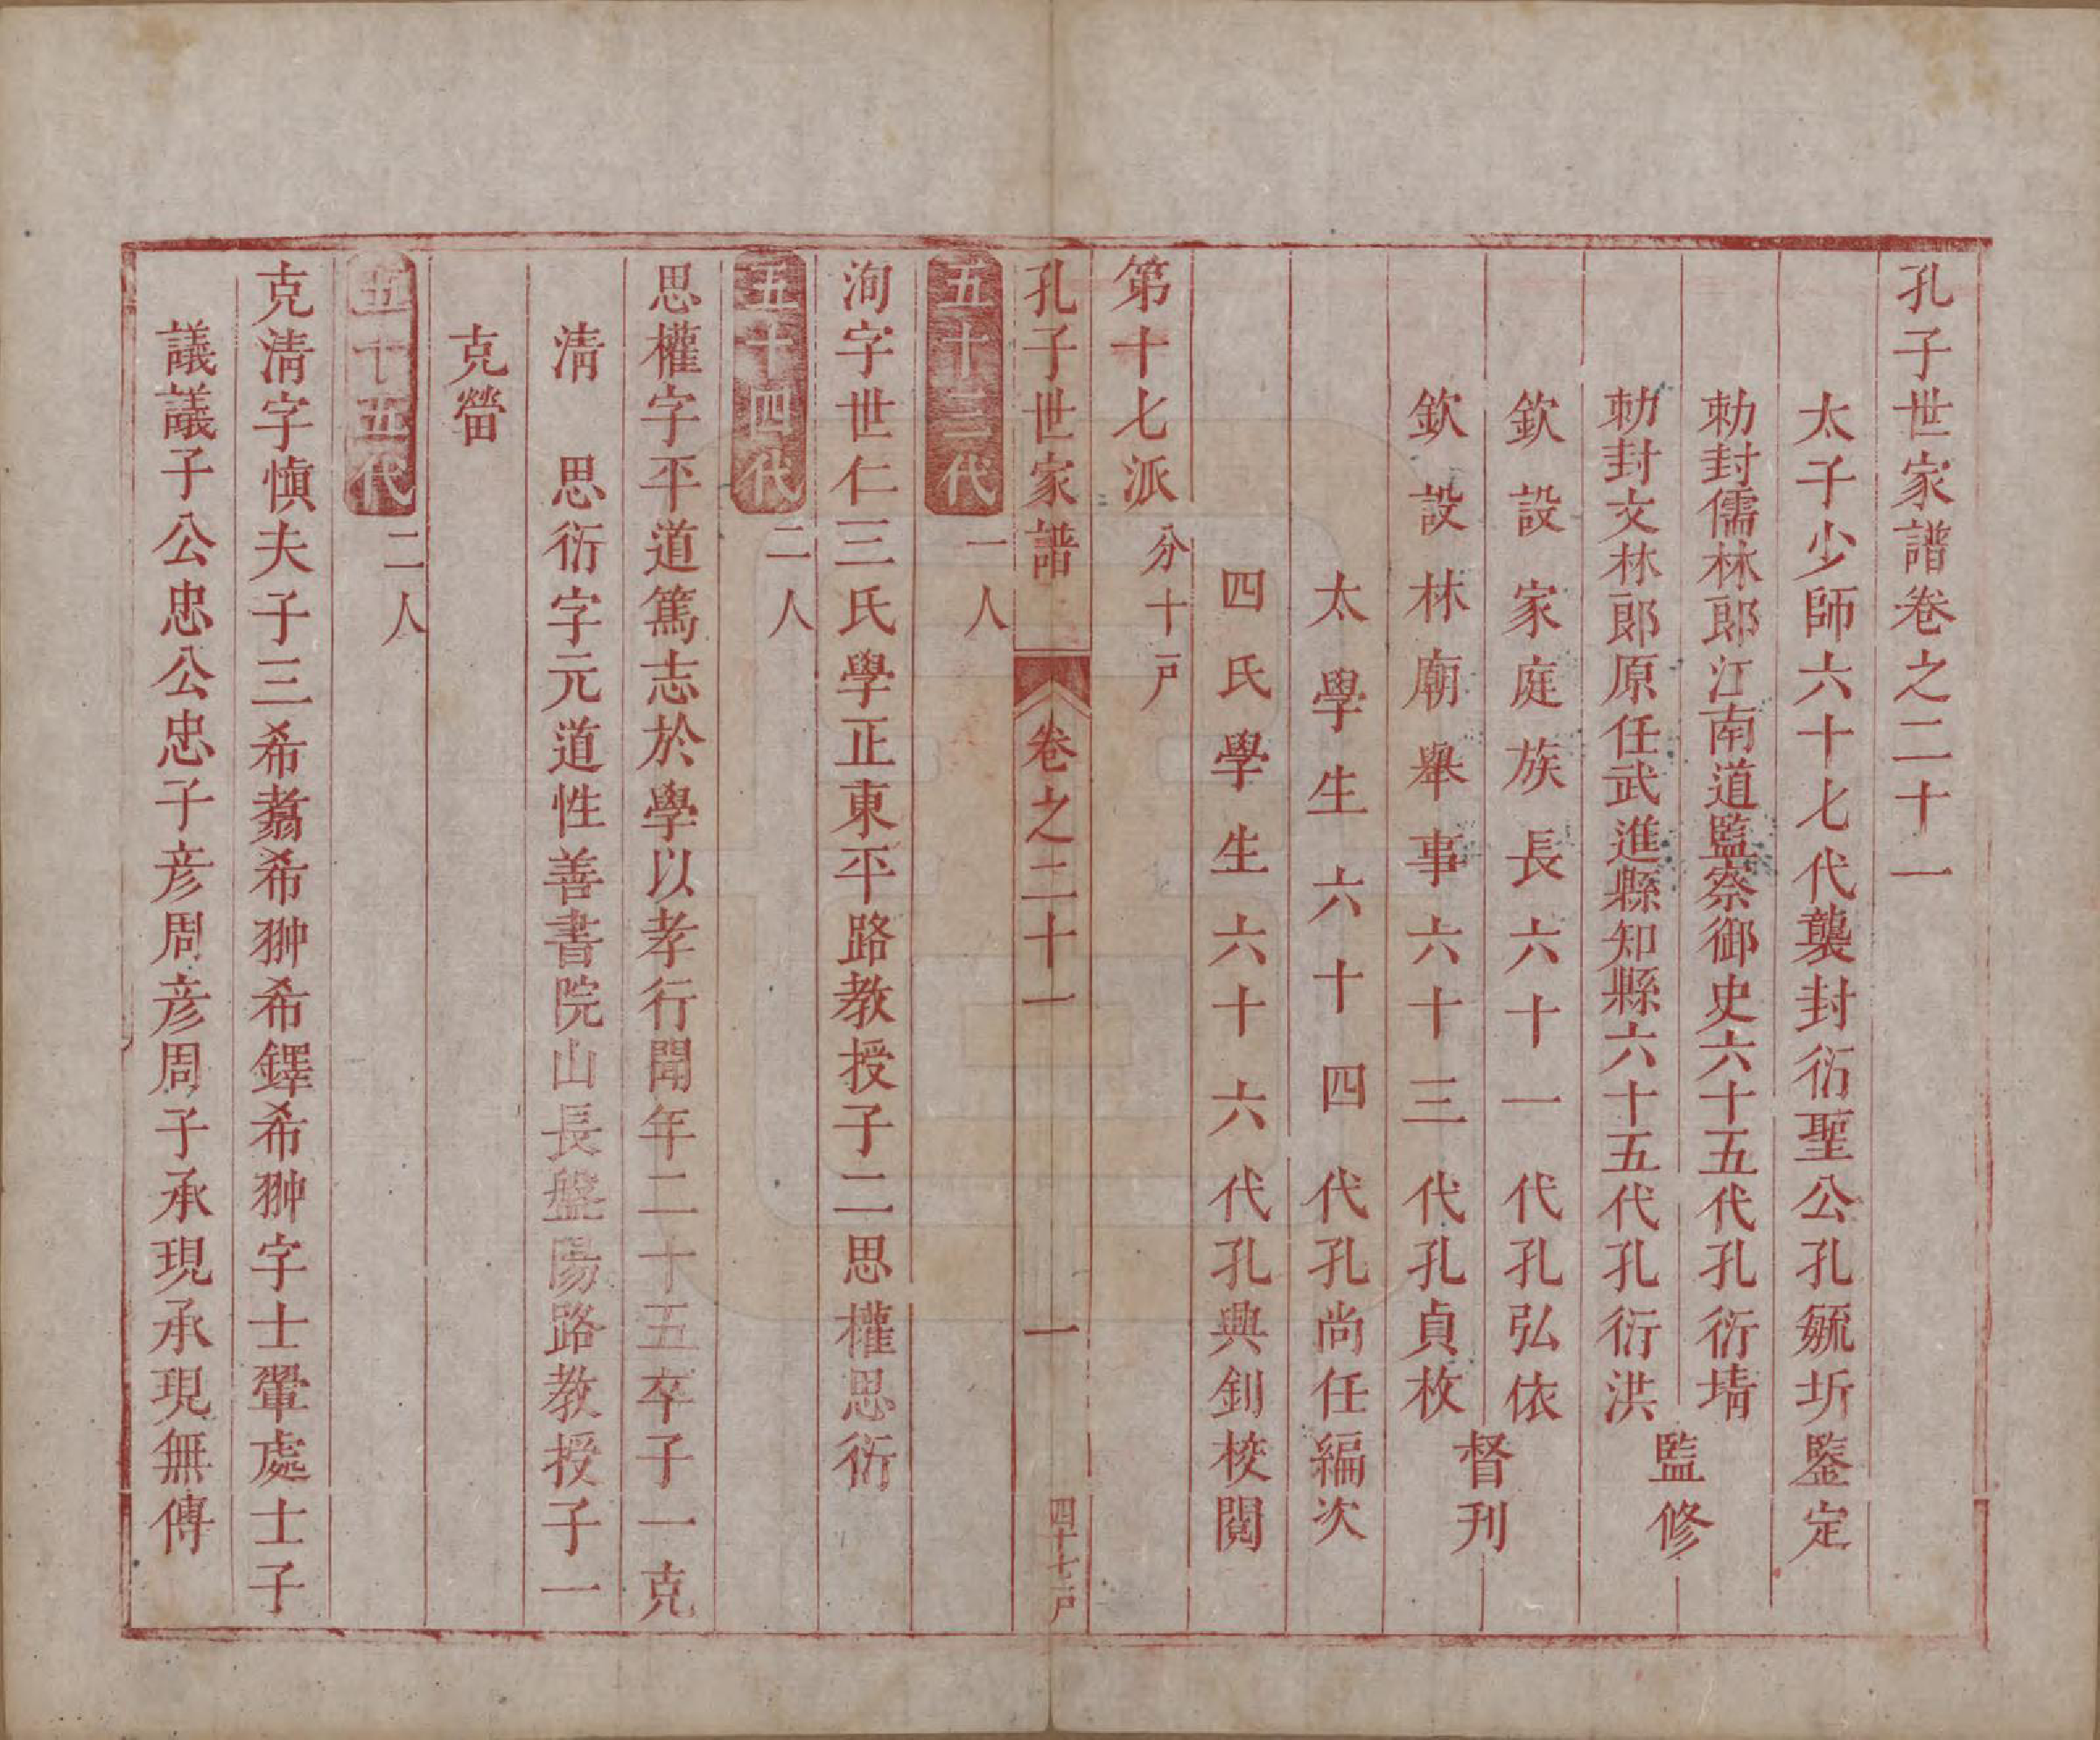 孔子世家譜卷之二十一
太子少師六十七代襲封衍聖公孔毓圻鑒定
勅封儒林郎江南道監察御史六十五代孔衍堉
勅封文林郎原任武進縣知縣六十五代孔衍洪
監修
欽設家庭族長六十一代孔弘依
欽設林廟舉事六十三代孔貞枚
督刊
太學生六十四代孔尚任編次
四氏學生六十六代孔興釗校閱
第十七派 分十一户
孔子世家譜 卷之二十一 一 四十七户
五十三代 一人
洵字世仁三氏學正東平路教授子二思權思衍
五十四代 二人
思權字平道篤志於學以孝行聞年二十五卒子一克
清 思衍字元道性善書院山長盤陽路教授子一
克營
五十五代 二人
克清字愼夫子三希翥希翀希鐸希翀字士翬處士子
議議子公忠公忠子彦周彦周子承現承現無傳